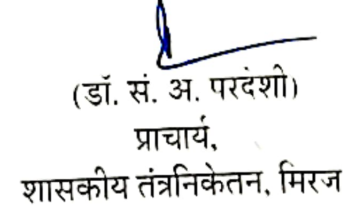 (डॉ. सं. अ. परदेशी)
प्राचार्य,
शासकीय तंत्रनिकेतन, मिरज